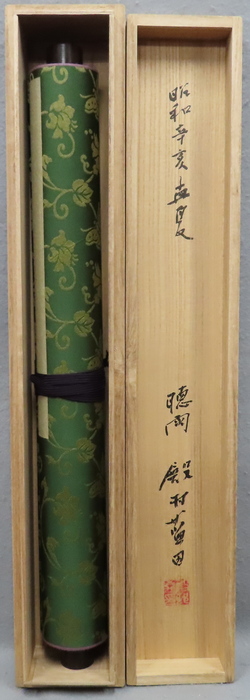 昭和辛亥孟夏
聴雨 殿村藍田